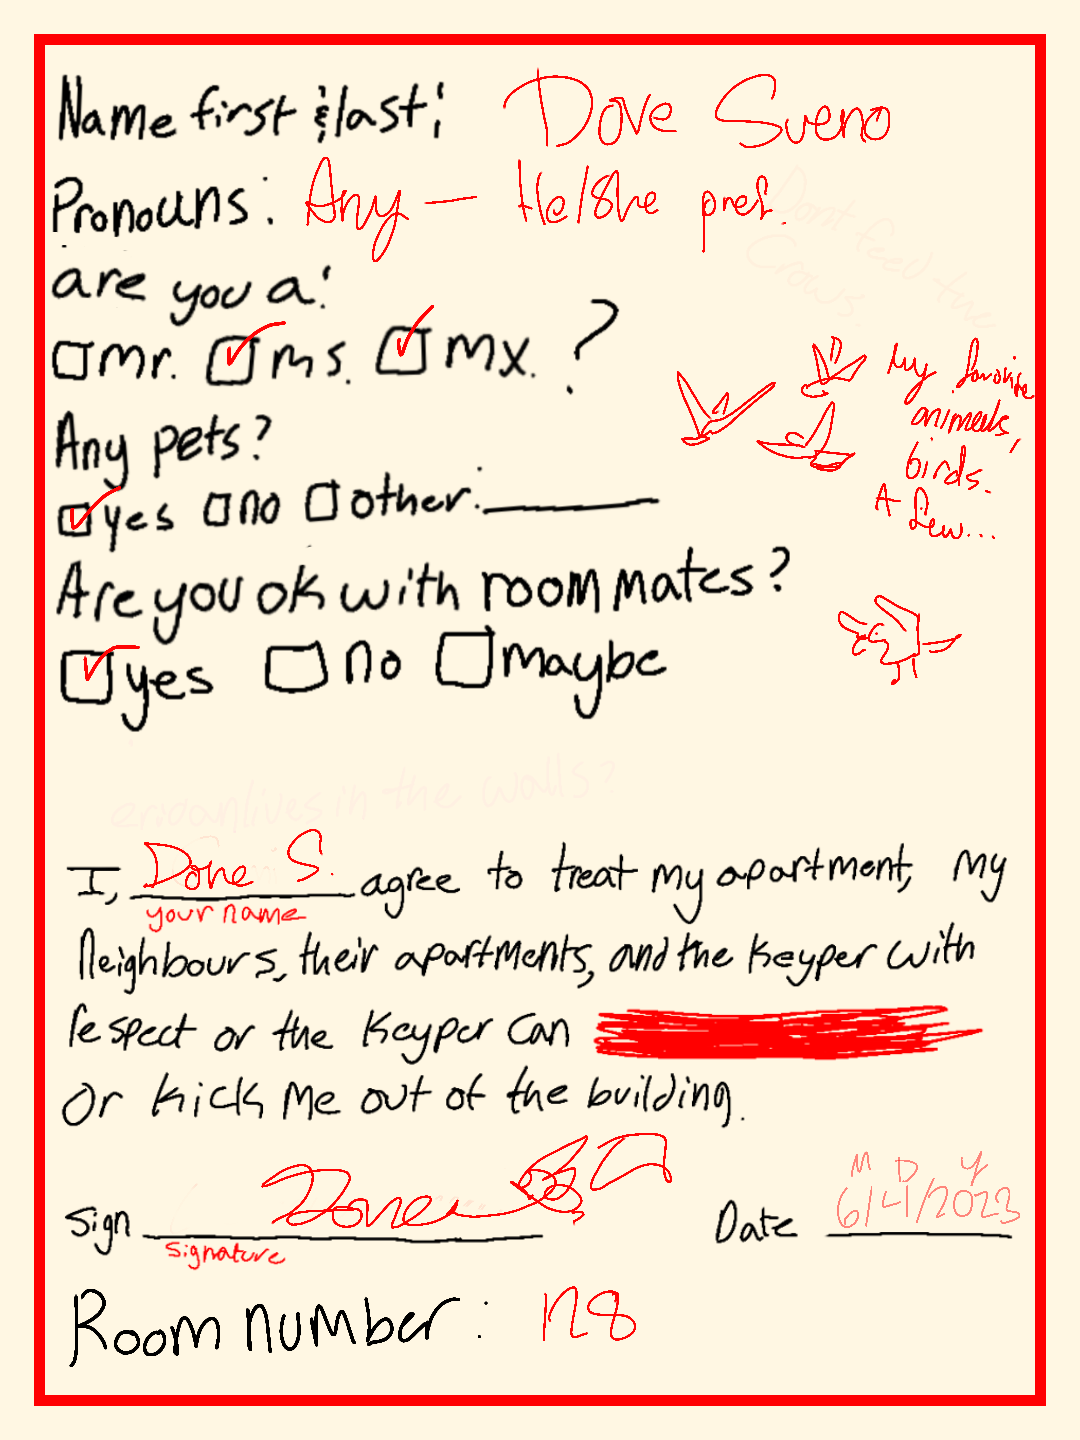 Name first & last: Dove Sueno
Pronouns: Any — He/She pref.
Dont feed the
Crows
are you a:
mr. ms. mx. ?
My favorite
animals,
birds.
A few...
Any pets?
yes no other: ______
Are you ok with roommates?
yes no maybe
lives in the walls?
I, Dove S. agree to treat my apartment, my
your name
Neighbours, their apartments, and the Keyper with
respect or the Keyper can
or kick me out of the building.
M D Y
Sign Dove Date 6/4/2023
signature
Room number: 128